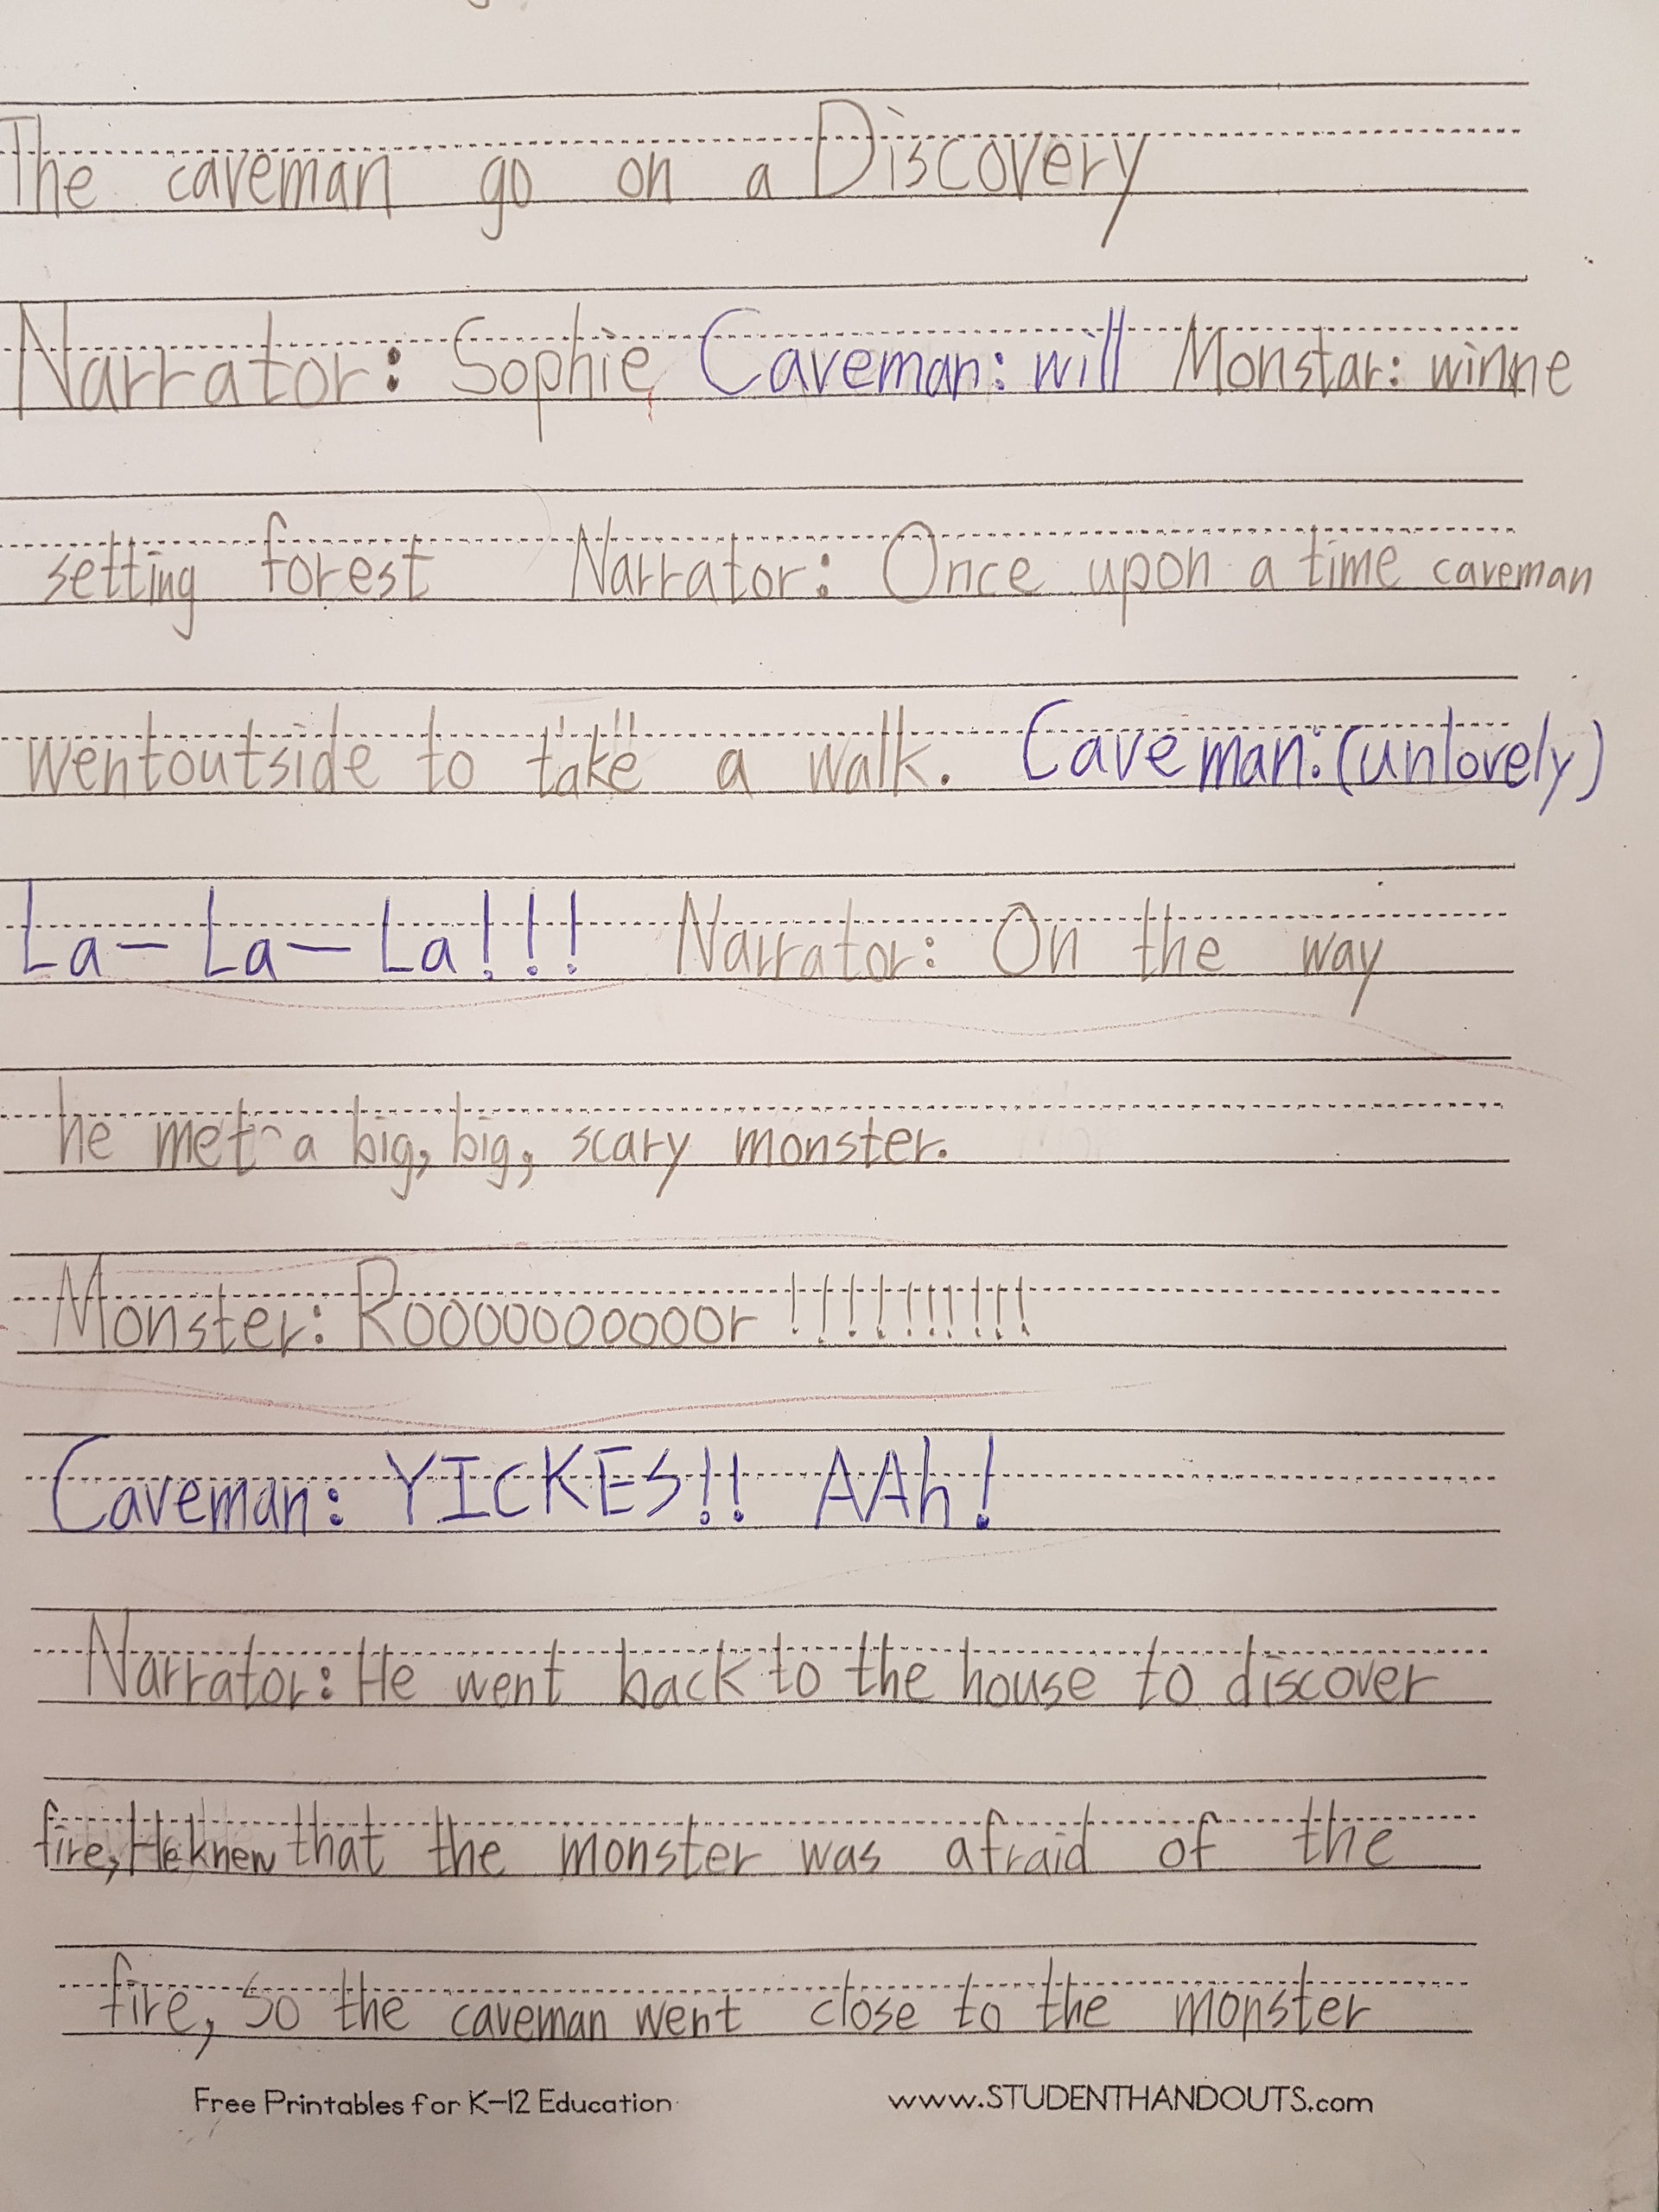 The caveman go on a Discovery
Narrator: Sophie Caveman: will Monstar: winne
setting forest Narrator: Once upon a time caveman
wentoutside to take a walk. Caveman: (unlovely)
La - La - La!!! Narrator: On the way
he met a big, big, scary monster.
Monster: Roooooooooor !!!!!!!!!!
Caveman: YICKES!! AAh!
Narrator: He went back to the house to discover
fire, He knew that the monster was afraid of the
fire, So the caveman went close to the monster
Free Printables for K-12 Education www.STUDENTHANDOUTS.com